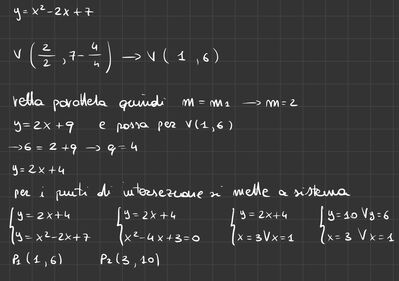 y = x² - 2x + 7
V ( 2/2 , 7 - 4/4 ) → V ( 1 , 6 )
retta parallela quindi m = m₁ → m = 2
y = 2x + q e passa per V(1,6)
→ 6 = 2 + q → q = 4
y = 2x + 4
per i punti di intersezione si mette a sistema
{ y = 2x + 4 { y = 2x + 4 { y = 2x + 4 { y = 10 V y = 6
{ y = x² - 2x + 7 { x² - 4x + 3 = 0 { x = 3 V x = 1 { x = 3 V x = 1
P₁ (1,6) P₂ (3,10)